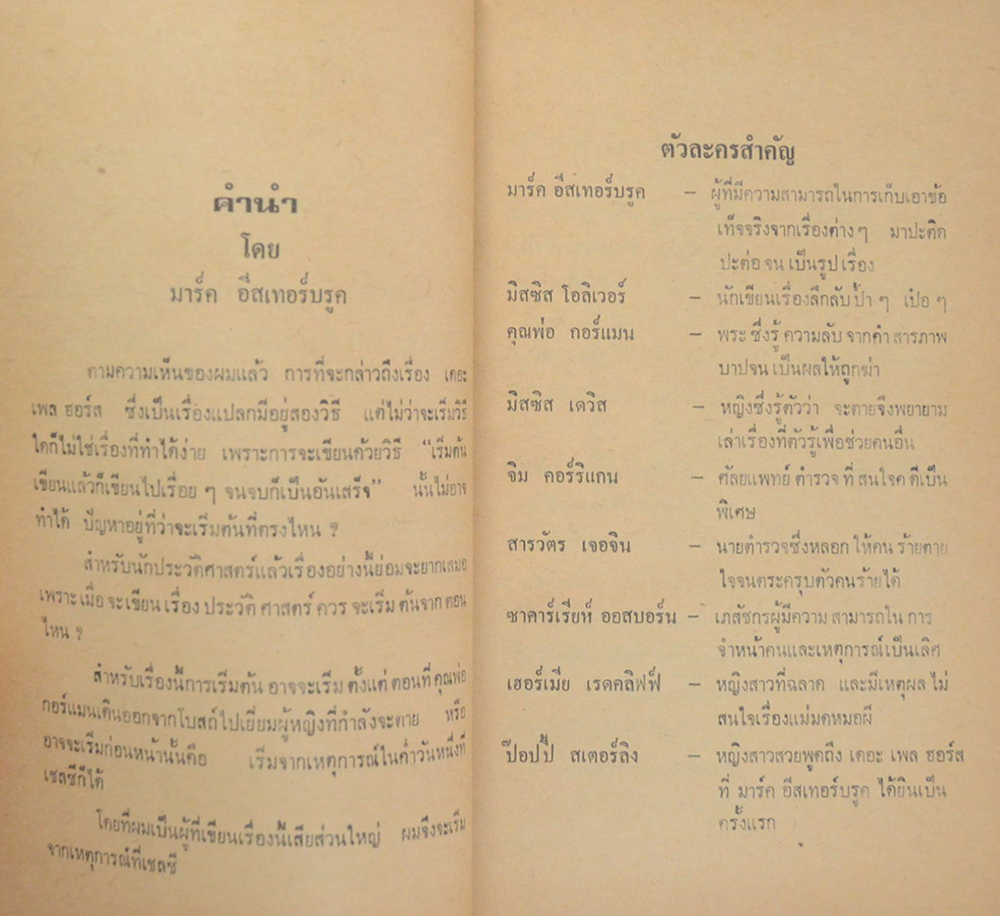 คำนำ
โดย
มาร์ค อีสเทอร์บรูค
ตามความเห็นของผมแล้ว การที่จะกล่าวถึงเรื่อง เดอะ
เพล ฮอร์ส ซึ่งเป็นเรื่องแปลกมีอยู่สองวิธี แต่ไม่ว่าจะเริ่มวิธี
ใดก็ไม่ใช่เรื่องที่ทำได้ง่าย เพราะการจะเขียนด้วยวิธี “เริ่มต้น
เขียนแล้วก็เขียนไปเรื่อย ๆ จนจบก็เป็นอันเสร็จ” นั้นไม่อาจ
ทำได้ ปัญหาอยู่ที่ว่าจะเริ่มต้นที่ตรงไหน ?
สำหรับนักประวัติศาสตร์แล้วเรื่องอย่างนี้ย่อมจะยากเสมอ
เพราะเมื่อ จะเขียน เรื่อง ประวัติ ศาสตร์ ควร จะเริ่ม ต้นจาก ตอน
ไหน ?
สำหรับเรื่องนี้การเริ่มต้น อาจจะเริ่ม ตั้งแต่ ตอนที่ คุณพ่อ
กอร์แมนเดินออกจากโบสถ์ไปเยี่ยมผู้หญิงที่กำลังจะตาย หรือ
อาจจะเริ่มก่อนหน้านั้นคือ เริ่มจากเหตุการณ์ในค่ำวันหนึ่งที่
เชลซีก็ได้
โดยที่ผมเป็นผู้ที่เขียนเรื่องนี้เสียส่วนใหญ่ ผมจึงจะเริ่ม
จากเหตุการณ์ที่เชลซี
ตัวละครสำคัญ
มาร์ค อีสเทอร์บรูค – ผู้ที่มีความสามารถในการเก็บเอาข้อ
เท็จจริงจากเรื่องต่าง ๆ มาปะติด
ปะต่อ จน เป็นรูป เรื่อง
มิสซิส โอลิเวอร์ – นักเขียนเรื่องลึกลับ ป้ำ ๆ เป๋อ ๆ
คุณพ่อ กอร์แมน – พระ ซึ่งรู้ ความลับ จากคำ สารภาพ
บาปจน เป็นผลให้ถูกฆ่า
มิสซิส เดวิส – หญิงซึ่งรู้ตัวว่า จะตายจึงพยายาม
เล่าเรื่องที่ตัวรู้เพื่อช่วยคนอื่น
จิม คอร์ริแกน – ศัลยแพทย์ ตำรวจ ที่ สนใจค ดีเป็น
พิเศษ
สารวัตร เจอจิน – นายตำรวจซึ่งหลอก ให้คน ร้ายตาย
ใจจนตระครุบตัวคนร้ายได้
ซาคาร์เรียห์ ออสบอร์น – เภสัชกรผู้มีความ สามารถใน การ
จำหน้าคนและเหตุการณ์เป็นเลิศ
เฮอร์เมีย เรดคลิฟฟ์ – หญิงสาวที่ฉลาด และมีเหตุผล ไม่
สนใจเรื่องแม่มดหมอผี
ป๊อปปี้ สเตอร์ลิง – หญิงสาวสวยพูดถึง เดอะ เพล ฮอร์ส
ที่ มาร์ค อีสเทอร์บรูค ได้ยินเป็น
ครั้งแรก